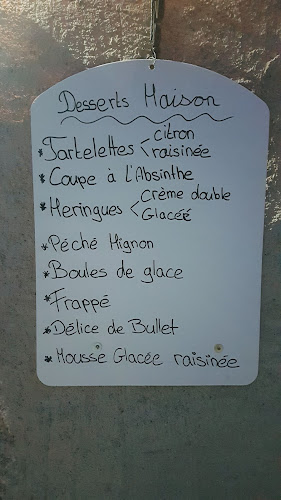 Desserts Maison
* Tartelettes < citron
raisinée
* Coupe à l'Absinthe
* Meringues < Crème double
Glacée
* Péché Mignon
* Boules de glace
* Frappé
* Délice de Bullet
* Mousse Glacée raisinée